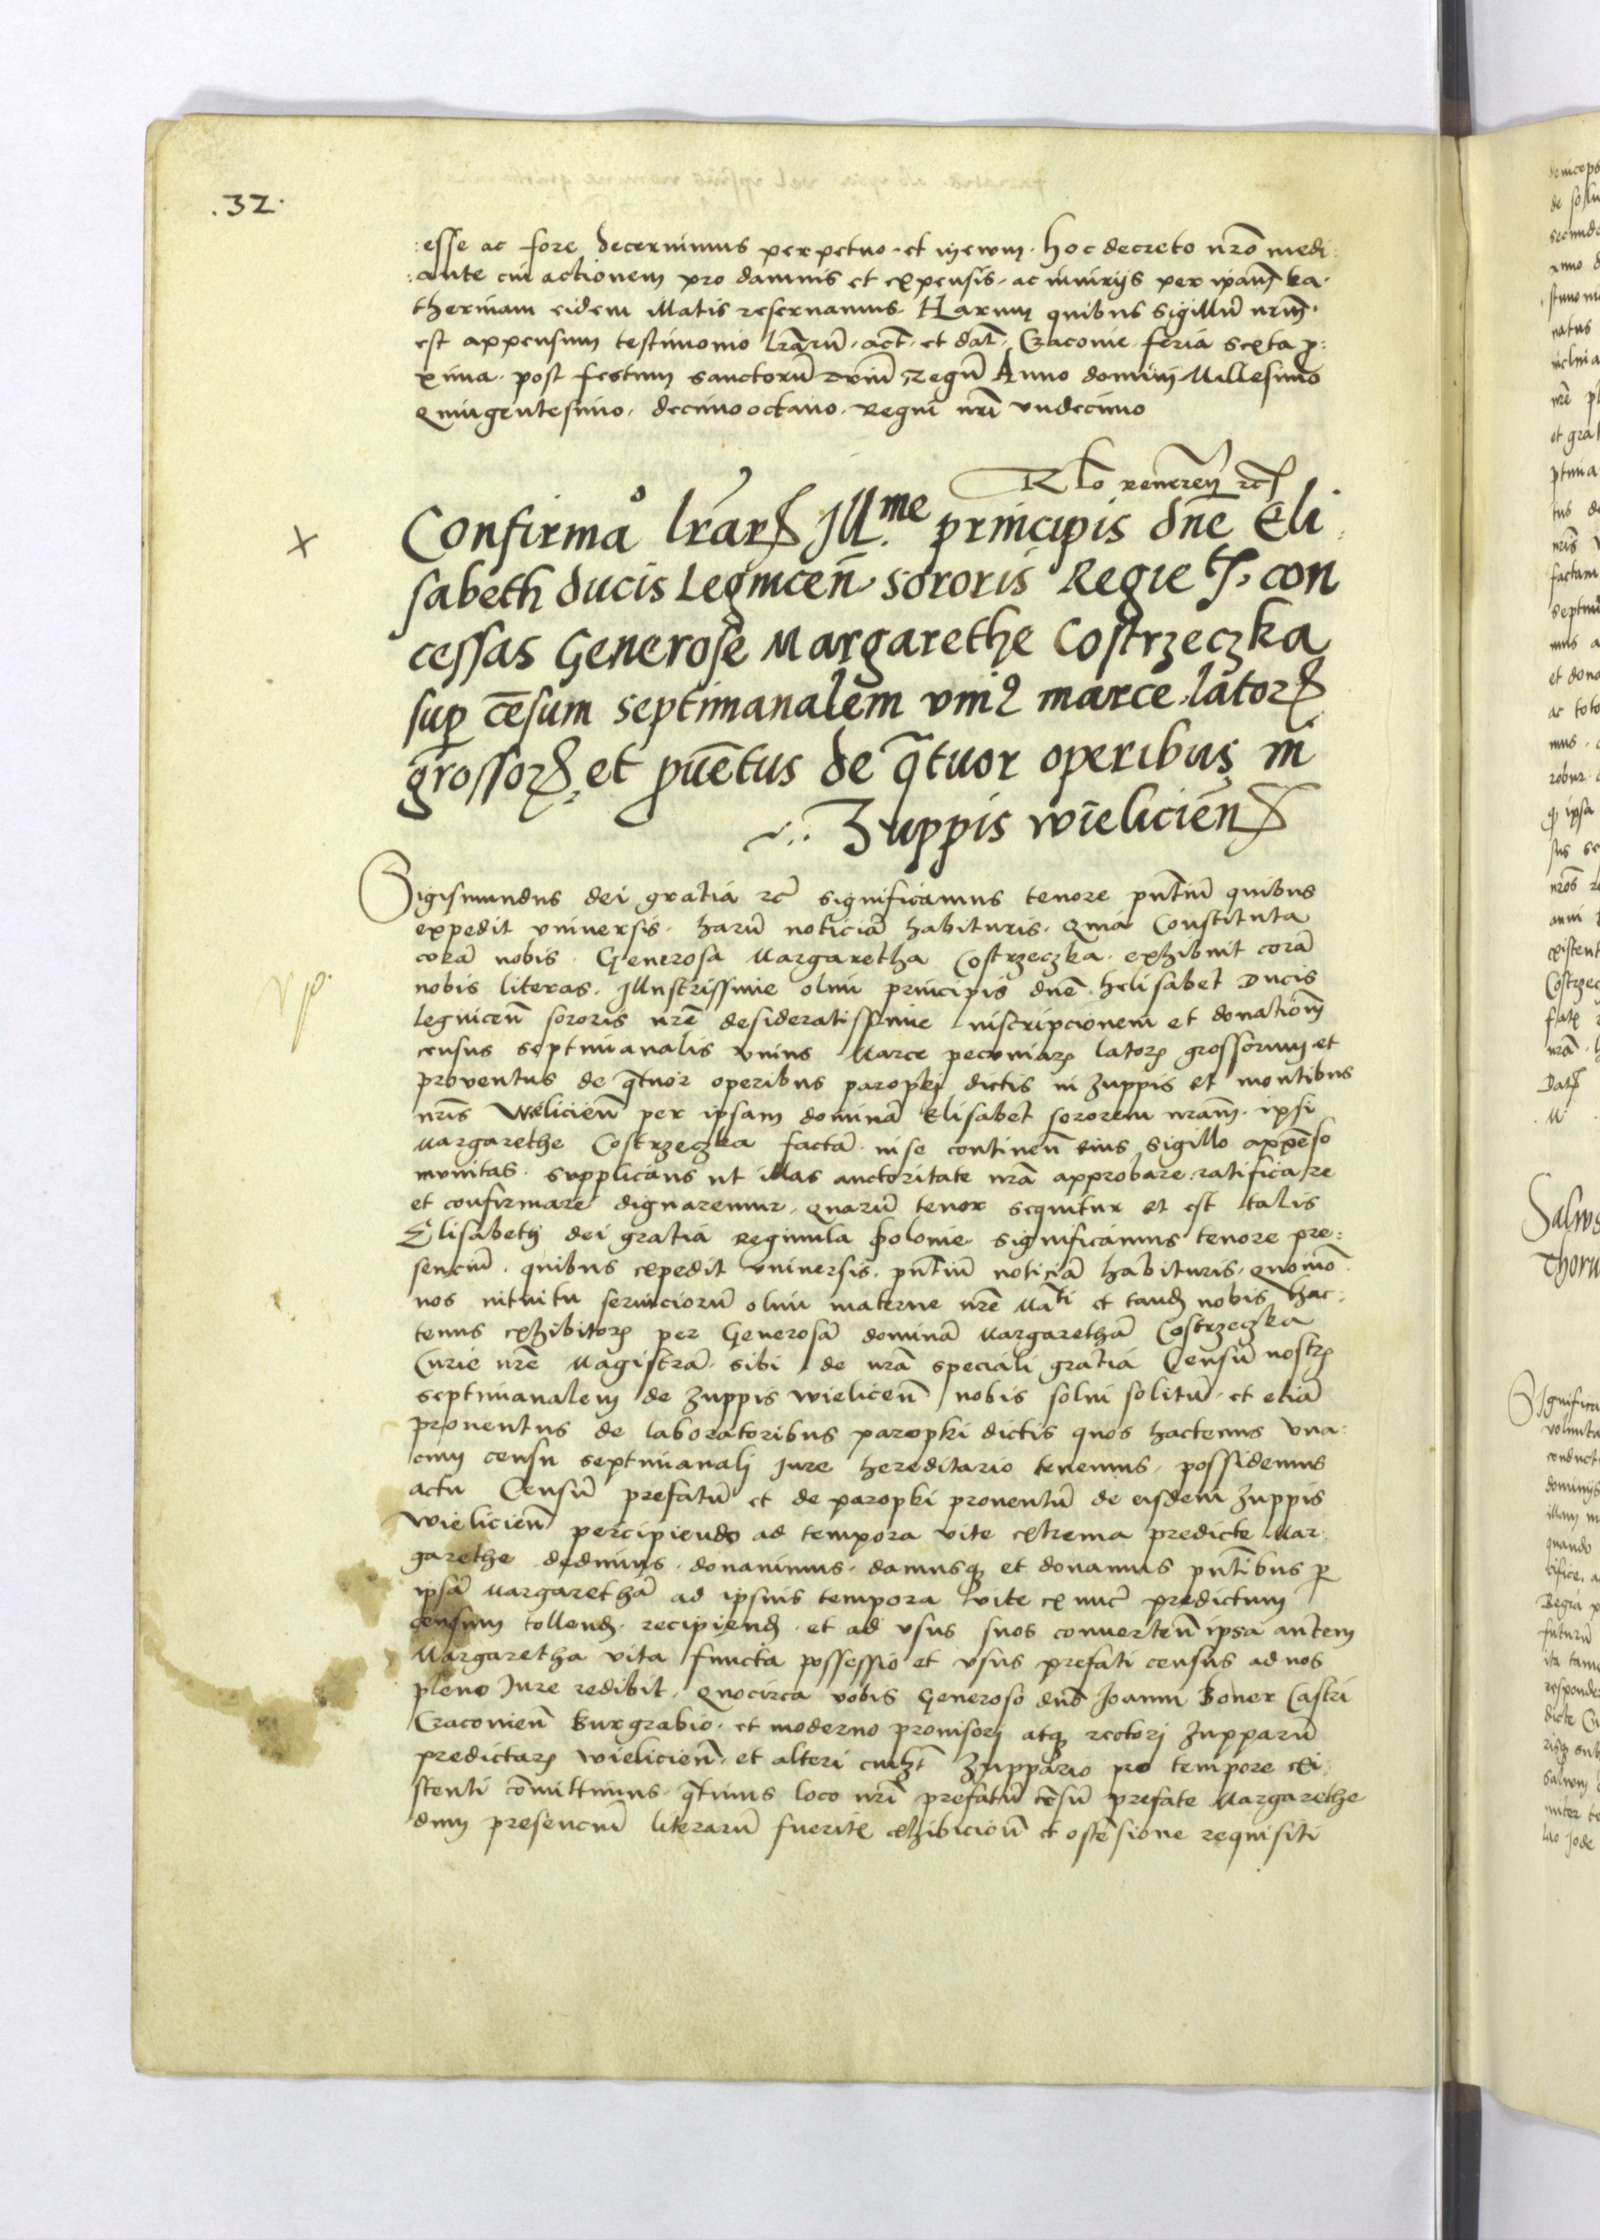 .32.
esse ac fore decernimus perpetuo et meum hoc decreto nrō medi:
ante cui actionem pro damnis et expensis ac iniurijs per ipam ka
therinam eidem illatis reseruamus Harum quibus sigillū nrm
est appensum testimonio lrārū act et dat Cracovie feria sexta p
xima post festum sanctorū triū Regū Anno domini Millesimo
quingentesimo decimooctavo Regni nrī vndecimo
Rlo reveren
Confirma lrār Ill.me principis dnē Eli
sabeth ducis Legnicen sororis Regie con
cessas Generose Margarethe Costrzeczka
sup cēsum septimanalem vni9 marce lator
grossor et pvētus de qtuor operibus in
Zuppis wielicien
Sigismundus dei gratia rc significamus tenore pntiū quibus
expedit vniversis harū noticiā habituris quia Constituta
corā nobis Generosa Margaretha Costrzeczka exhibuit corā
nobis literas Illustrissime olim principis dnē helisabet Ducis
legnicen sororis nrē desideratissime inscripcionem et donationem
census septimanalis vnius Marce pecuniar lator grossorum et
proventus de qtuor operibus paropki dictis in zuppis et montibus
nris Wielicien per ipsam dominā Elisabet sororem nram ipsi
Margarethe Costrzeczka factā in se continen eius sigillo appēso
munitas supplicans ut illas auctoritate nrā approbare ratificare
et confirmare dignaremur quarū tenor sequitur et est talis
Elisabeth dei gratia Reginula polonie significamus tenore pre:
senciū quibus expedit vniversis pntiū noticiā habituris quomō
nos intuitu serviciorū olim materne nrē Mati et tand nobis hac:
tenus exhibitor per Generosā dominā Margarethā Costrzeczka
Curie nrē Magistrā sibi de nrā speciali gratia Censū nostr
septimanalem de zuppis wielicen nobis solvi solitū et etiā
proventus de laboratoribus paropki dictis quos hactenus vna
cum censu septimanali Jure hereditario tenemus possidemus
actu Censū prefatū et de paropki proventū de eisdem zuppis
wielicien percipiendo ad tempora vite extrema predicte Mar
garethe dedimus donavimus damusq et donamus pntibus p
ipsā Margarethā ad ipsius tempora vite ex nunc predictum
censum tollend recipiend et ad vsus suos converten ipsa autem
Margaretha vita functa possessio et vsus prefati census ad nos
pleno Jure redibit Quocirca vobis Generoso dno Joanni Boner Castri
Cracovien Burgrabio et moderno provisori atq rectori zupparū
predictar wielicien et alteri cuilzt zuppario pro tempore exi
stenti cōmittimus qtinus loco nrī prefatū cēsū prefate Margarethe
dum presenciū literarū fueritis exhibicion et ostēsione requisiti